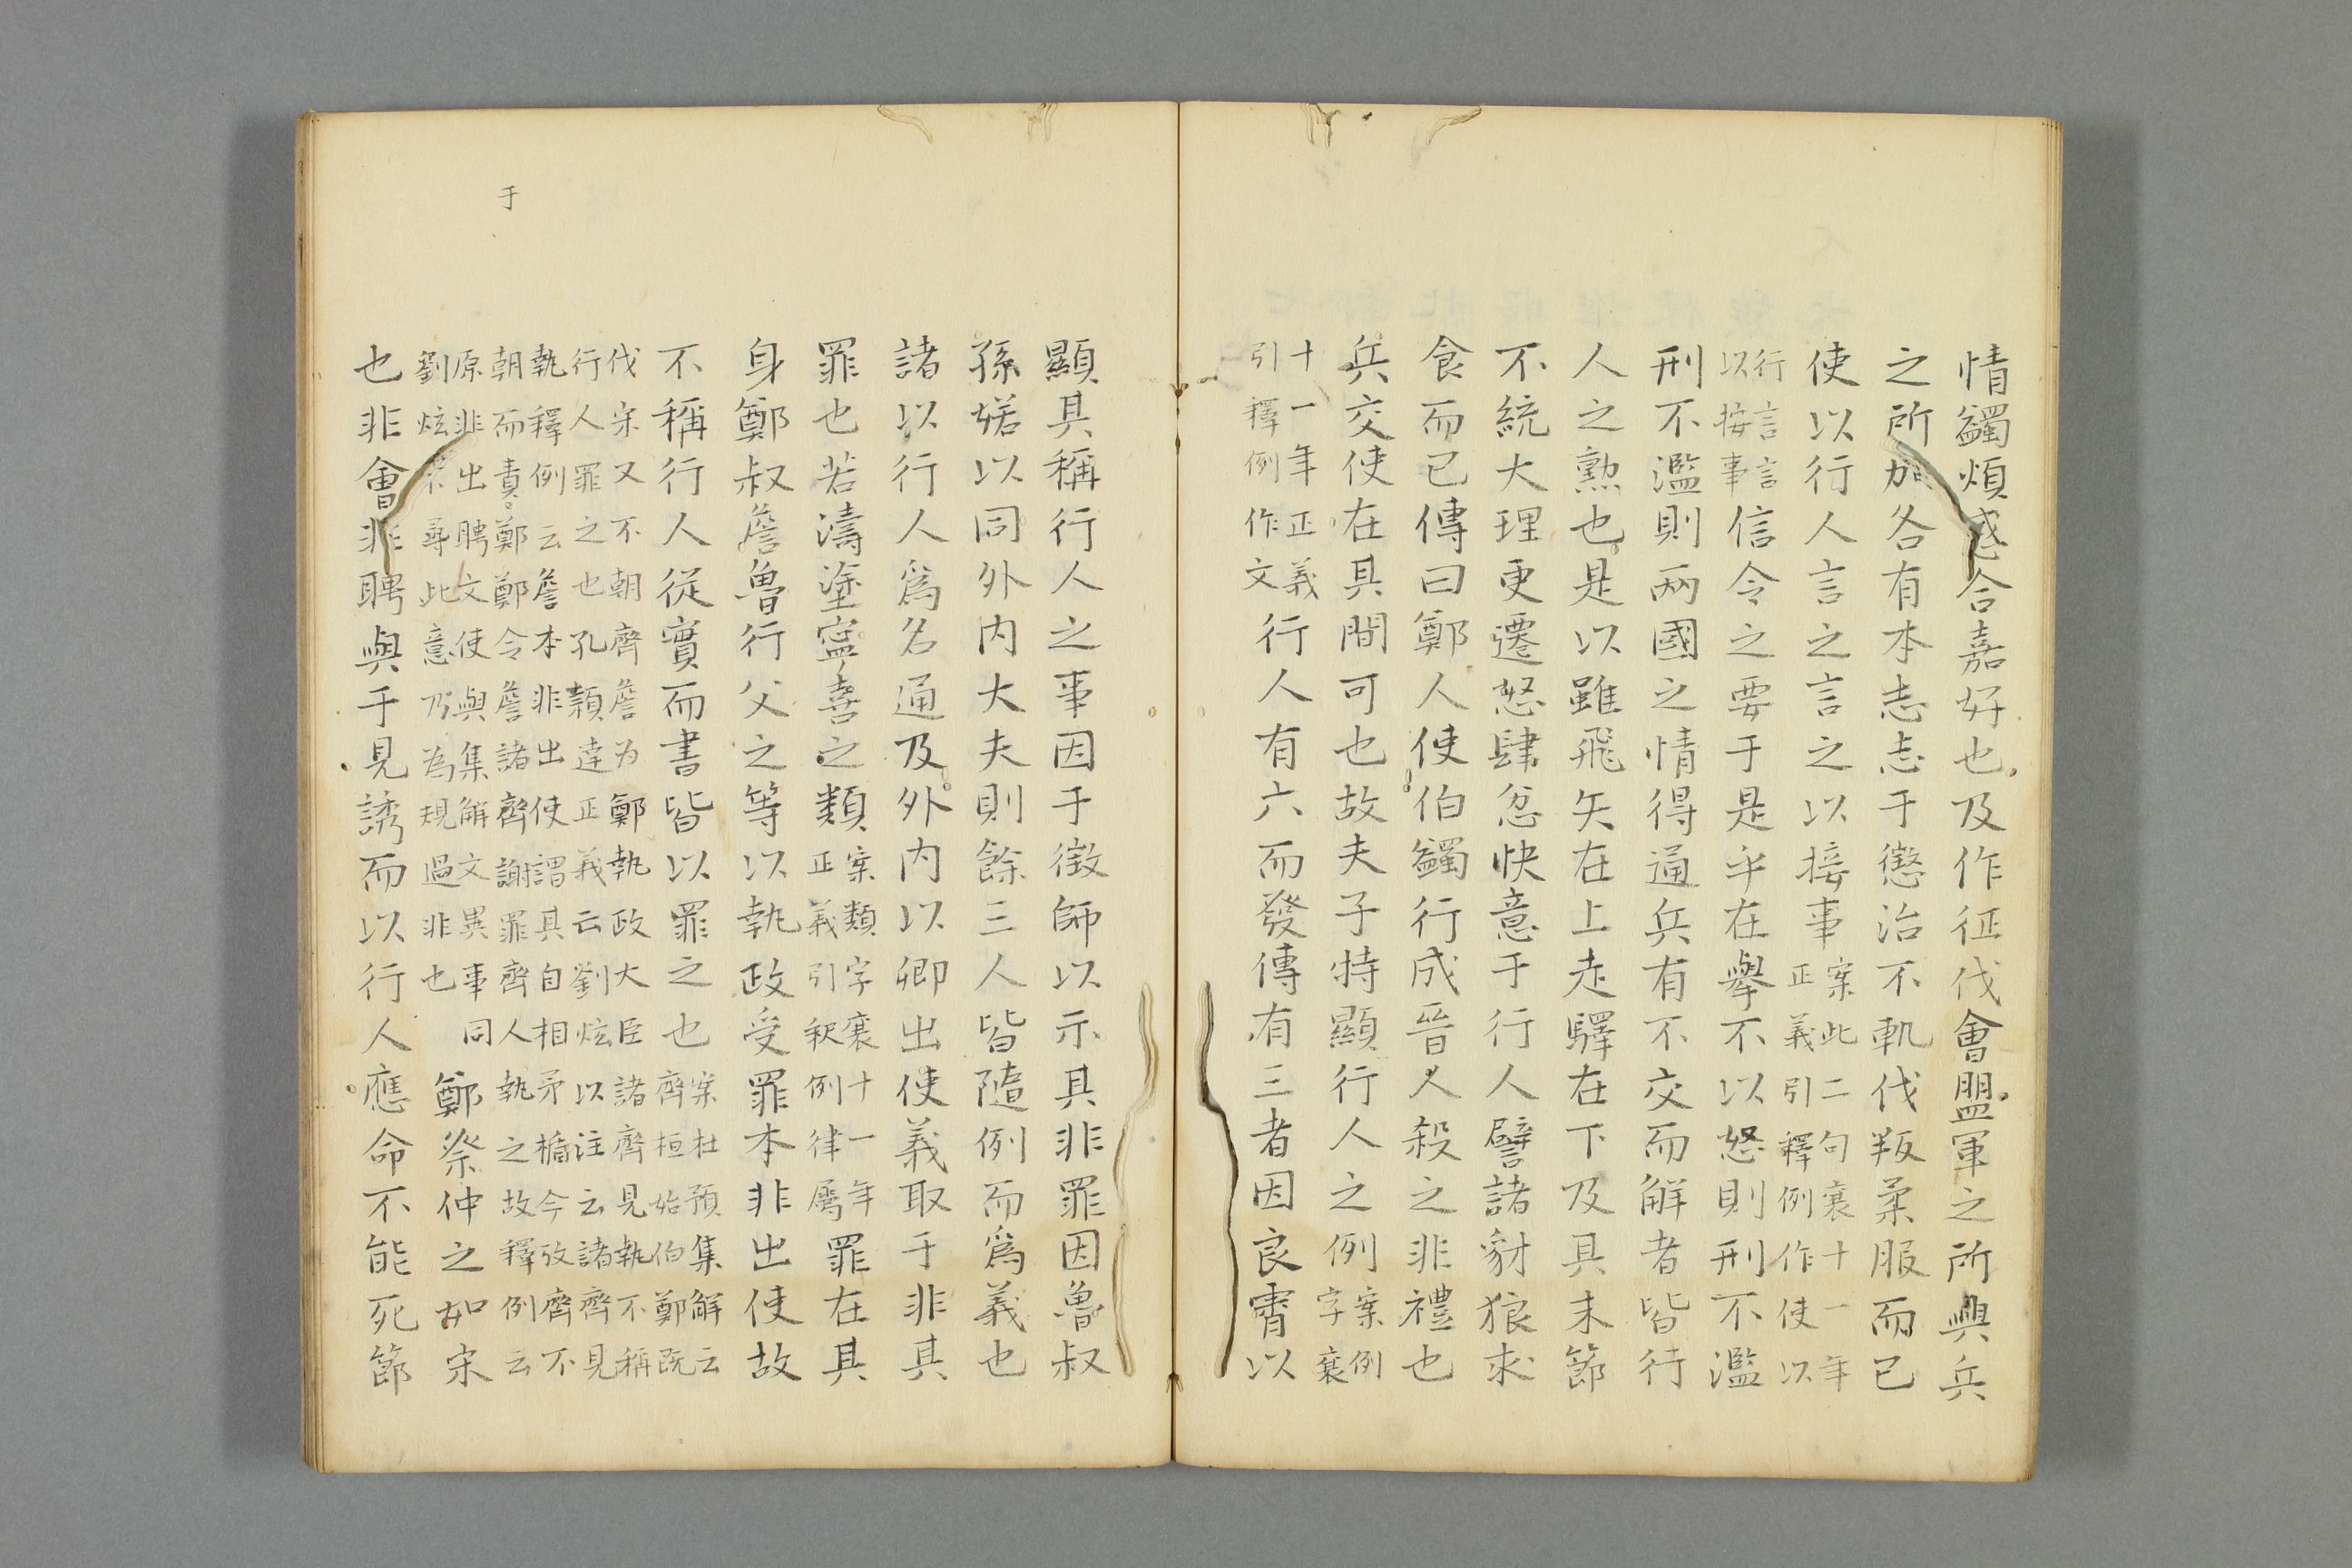 情蠲煩惑合嘉好也及作征伐會盟軍之所興兵
之所加各有本志志于懲治不軌伐叛柔服而已
使以行人言之言之以接事案此二句襄十一年
正義引釋例作使以
行言言
以按事信令之要于是乎在舉不以怒則刑不濫
刑不濫則兩國之情得通兵有不交而解者皆行
人之勲也是以雖飛矢在上走驛在下及其末節
不統大理更遷怒肆忿快意于行人譬諸豺狼求
食而已傳曰鄭人使伯蠲行成晉人殺之非禮也
兵交使在其間可也故夫子特顯行人之例案例
字襄
十一年正義
引釋例作文行人有六而發傳有三者因良霄以
顯其稱行人之事因于徵師以示其非罪因魯叔
孫婼以同外内大夫則餘三人皆隨例而爲義也
諸以行人爲名通及外内以卿出使義取于非其
罪也若濤塗寧喜之類案類字襄十一年
正義引釈例律屬罪在其
身鄭叔詹魯行父之等以執政受罪本非出使故
不稱行人從實而書皆以罪之也案杜預集解云
齊桓始伯鄭既
伐宋又不朝齊詹为鄭執政大臣諸齊見執不稱
行人罪之也孔頴逹正義云劉炫以注云諸齊見
執釋例云詹本非出使謂其自相矛楯今攷齊不
朝而責鄭鄭令詹諸齊謝罪齊人執之故釋例云
原非出聘文使與集解文異事同
劉炫尋此意乃為規過非也鄭祭仲之如宋
也非會非聘與于見誘而以行人應命不能死節
于